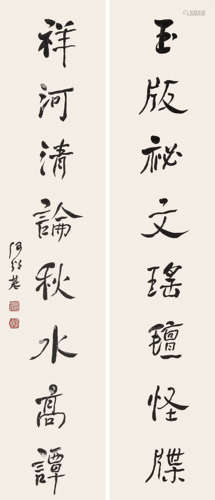 玉版祕文瑤壇怪牒
祥河清論秋水高譚
何紹基